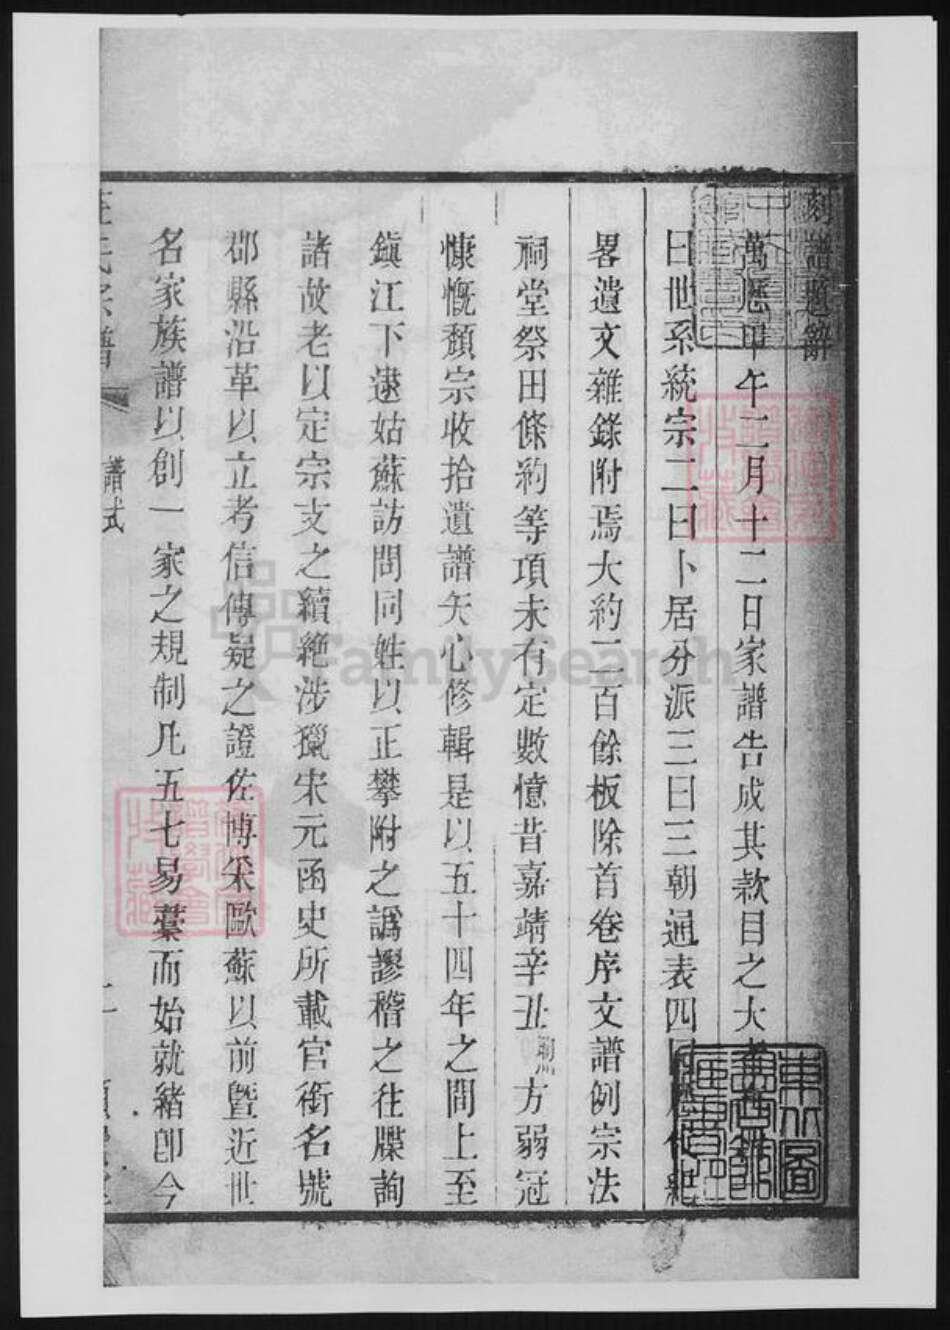 刻譜題辭
萬曆甲午二月十二日家譜告成其款目之大者
曰世系統宗二曰卜居分派三曰三朝通表四曰歷代紀
畧遺文雜錄附焉大約二百餘板除首卷序文譜例宗法
祠堂祭田條約等項未有定數憶昔嘉靖辛丑湘方弱冠
慷慨頹宗收拾遺譜矢心修輯是以五十四年之間上至
鎮江下逮姑蘇訪問同姓以正攀附之譌謬稽之往牒詢
諸故老以定宗支之續絶涉獵宋元函史所載官銜名號
郡縣沿革以立考信傳疑之證佐博采歐蘇以前曁近世
名家族譜以創一家之規制凡五七易藁而始就緒卽今
汪氏宗譜
譜式
一
FamilySearch